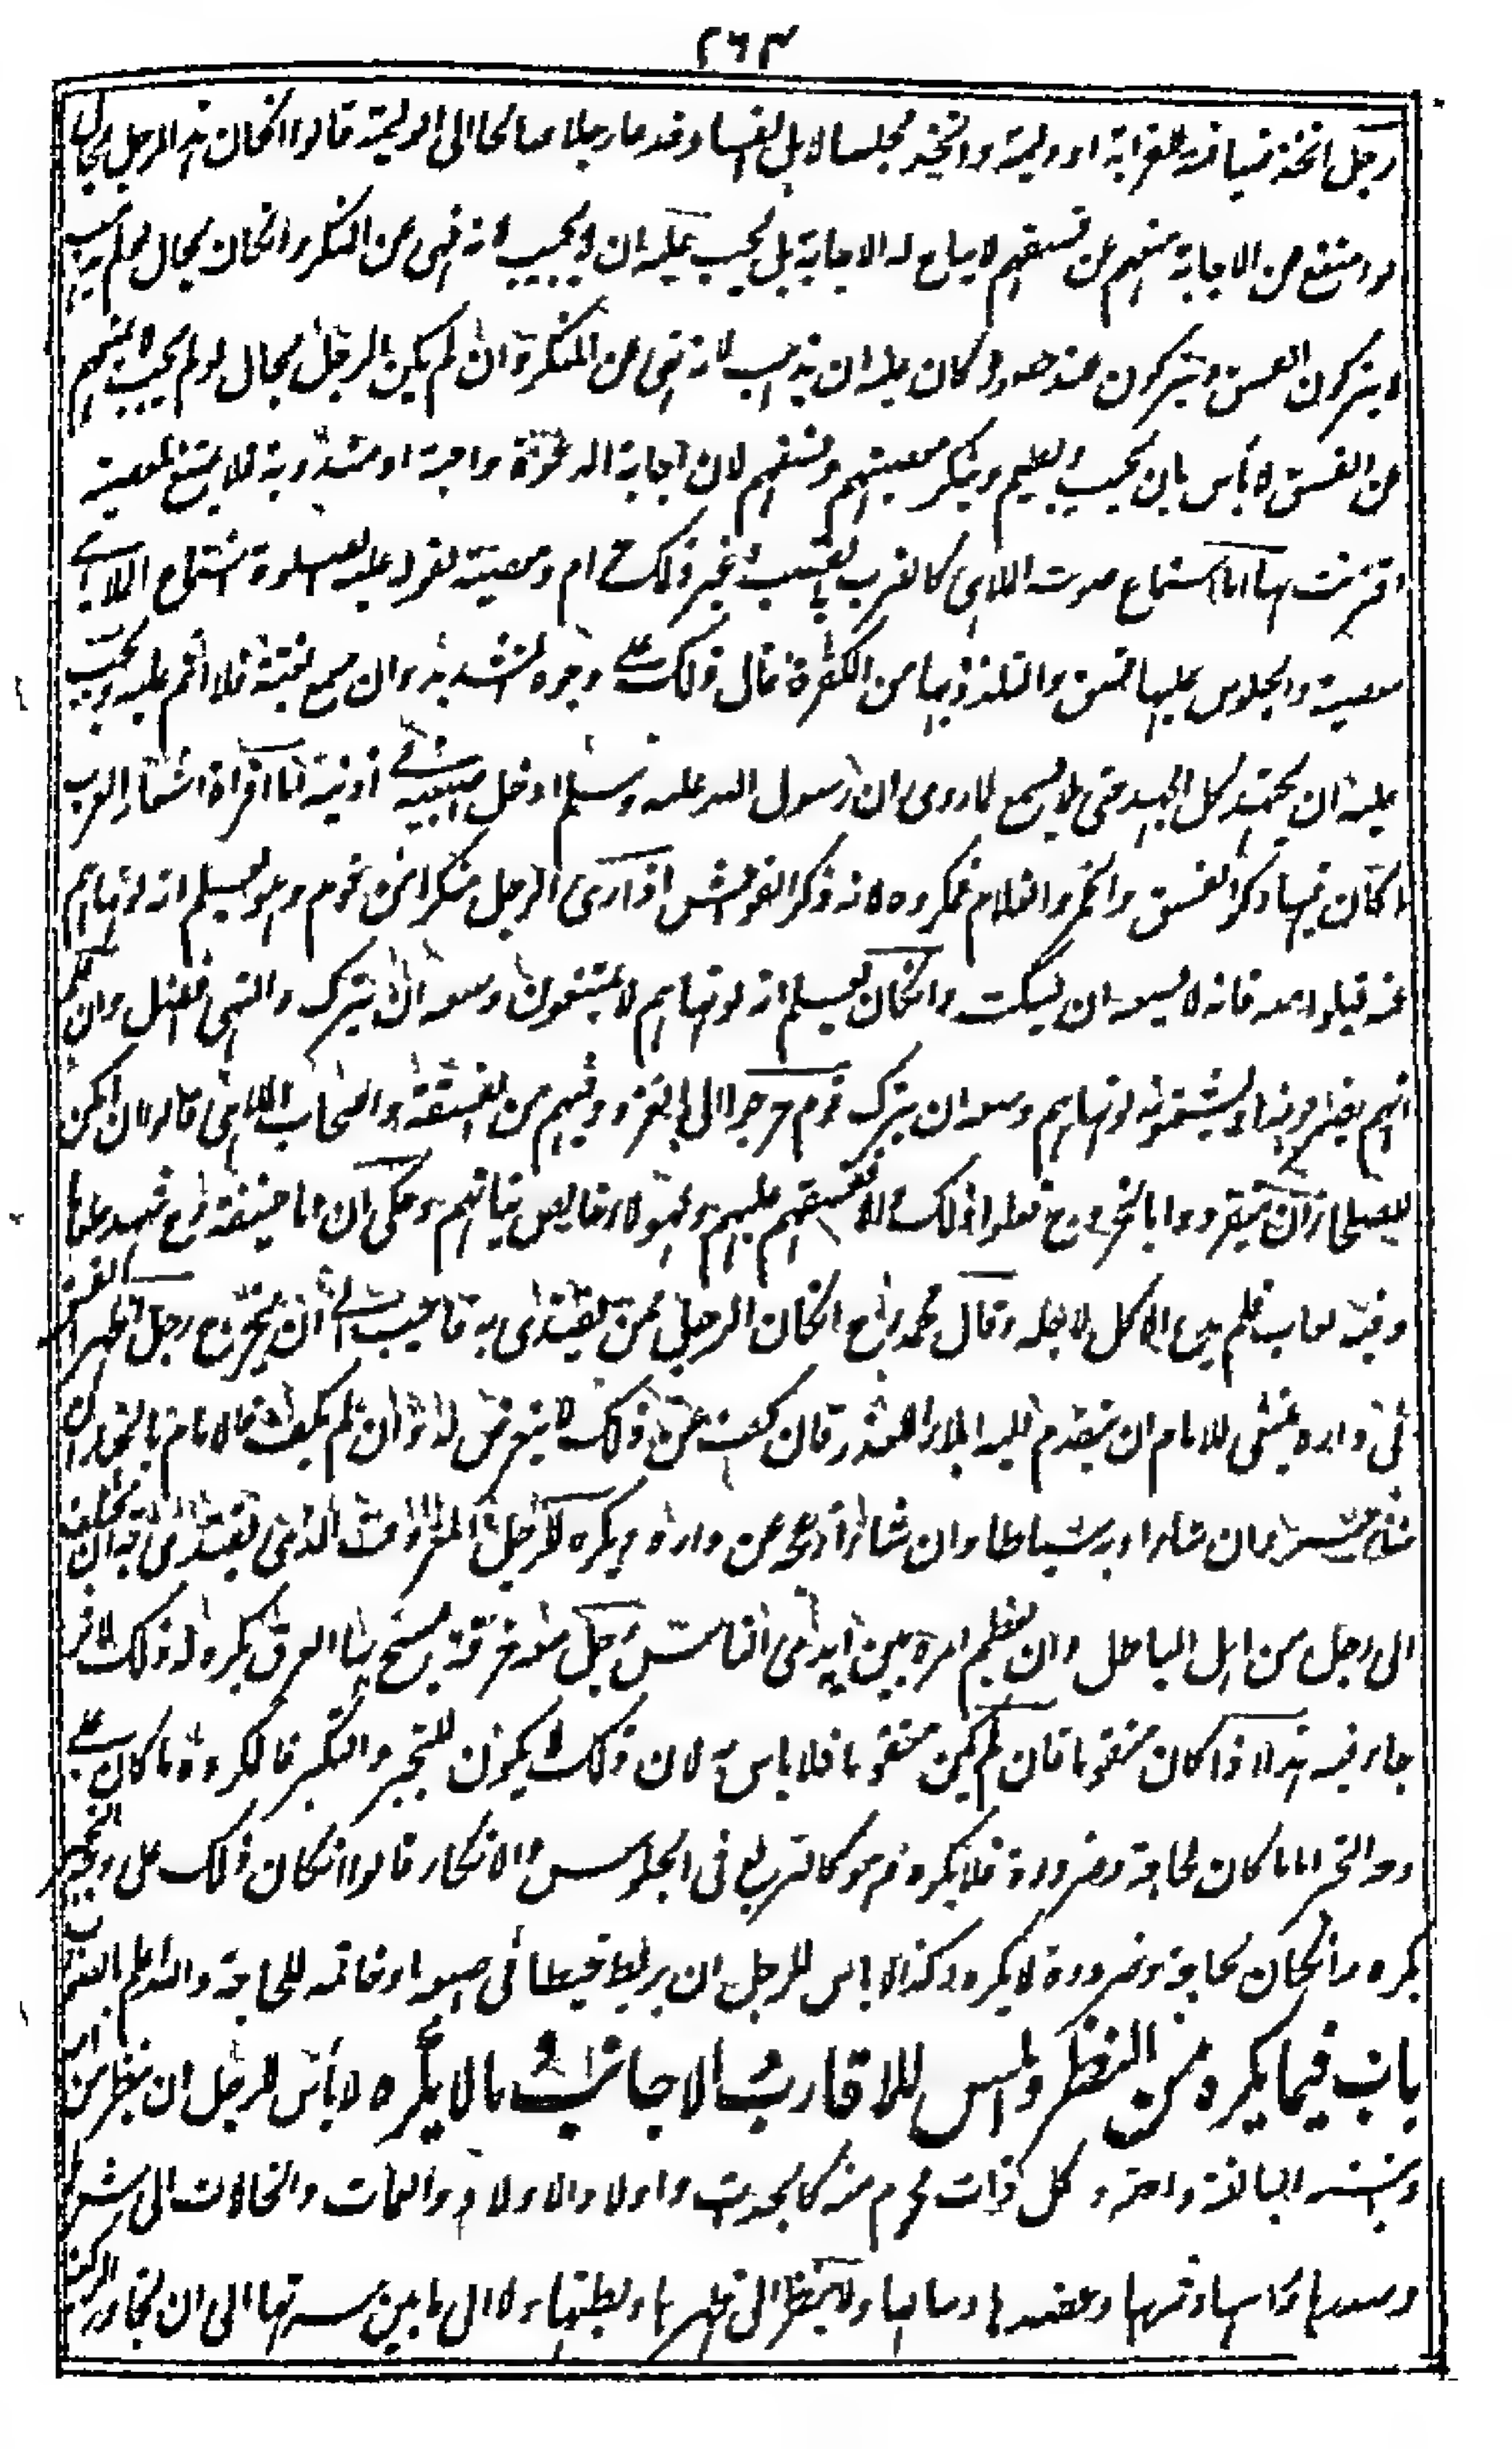 ٢٦٣
رجل اتخذ ضيافة للقرابة او وليمة واتخذ مجلسا لاهل الفساد فدعا رجلا صالحا الى الوليمة قالوا انكان هذا الرجل بحال
لو امتنع من الاجابة منعهم عن فسقهم لا يباح له الاجابة بل يجب عليه ان لا يجيب لانه نهى عن المنكر وانكان بحال لو لم يجب
لا يتركون الفسق ويتركون عند حضوره كان عليه ان يذهب لانه نهى عن المنكر وان لم يكن الرجل بحال لو لم يجب لا يمنعهم
عن الفسق لا بأس بان يجيب ويطعم وينكر معصيتهم وفسقهم لان اجابة الدعوة واجبة او مندوبة فلا يمتنع لمعصية
اقترنت بها اما استماع صوت الملاهي كالضرب بالقضيب وغير ذلك حرام ومعصية لقوله عليه الصلوة استماع الملاهي
معصية والجلوس عليها فسق والتلذذ بها من الكفر انما قال ذلك على وجه التشديد وان سمع بغتة فلا اثم عليه ويجب
عليه ان يجتهد كل الجهد حتى لا يسمع لما روى ان رسول الله عليه وسلم ادخل اصبعيه في اذنيه اما قراءة اشعار العرب
ما كان فيها ذكر الفسق والخمر والغلام فمكروه لانه ذكر الفواحش اذا رأى الرجل منكرا من قوم وهو يعلم انه لو نهاهم
عنه قبلوا منه فانه لا يسعه ان يسكت وانكان يعلم انه لو نهاهم لا يمتنعون وسعه ان يترك والنهي افضل وان علم
انهم يضربونه او يشتمونه لو نهاهم وسعه ان يترك قوم خرجوا الى الغزو وفيهم من الفسقة واصحاب الملاهي قالوا ان امكن
للصلحاء ان يتفردوا بالخروج فعلوا ذلك والا ففسقهم عليهم ولهؤلاء خالص نياتهم وحكى ان ابا حنيفة رح شهد طعاما
وفيه لعاب فلم يدع الاكل لاجله وقال محمد رح انكان الرجل ممن يقتدى به فاحب الي ان يخرج رجل اظهر الفسق
في داره ينبغي للامام ان يتقدم اليه ابلاء للعذر فان كف عن ذلك لا يتعرض له وان لم يكف فالامام بالخيار ان
شاء حبسه وان شاء ادبه سياطا وان شاء ازعجه عن داره ويكره للرجل المعروف الذي يقتدى به ان يختلف
الى رجل من اهل الباطل وان يعظم امره بين ايدي الناس رجل معه خرقة يمسح بها العرق يكره له ذلك لاثر
جاء فيه هذا اذا كان متقوما فان لم يكن متقوما فلا باس به لان ذلك لا يكون للتجبر والتكبر فالمكروه ما كان على
وجه التجبر اما ما كان لحاجة وضرورة فلا يكره فهو كالتربع في الجلوس والاتكاء قالوا انكان ذلك على وجه التجبر
يكره وانكان لحاجة وضرورة لا يكره وكذا لا باس للرجل ان يربط خيطا في اصبعه او خاتمه للحاجة والله اعلم بالصواب
باب فيما يكره من النظر والمس للاقارب والاجانب وما لا يكره لا بأس للرجل ان ينظر من امه
وبنته البالغة واخته وكل ذات محرم منه كالجدات واولاد الاولاد والعمات والخالات الى شعرها
وصدرها ورأسها وثديها وعضدها وساقها ولا ينظر الى ظهرها وبطنها ولا الى ما بين سرتها الى ان يجاوز الركبة